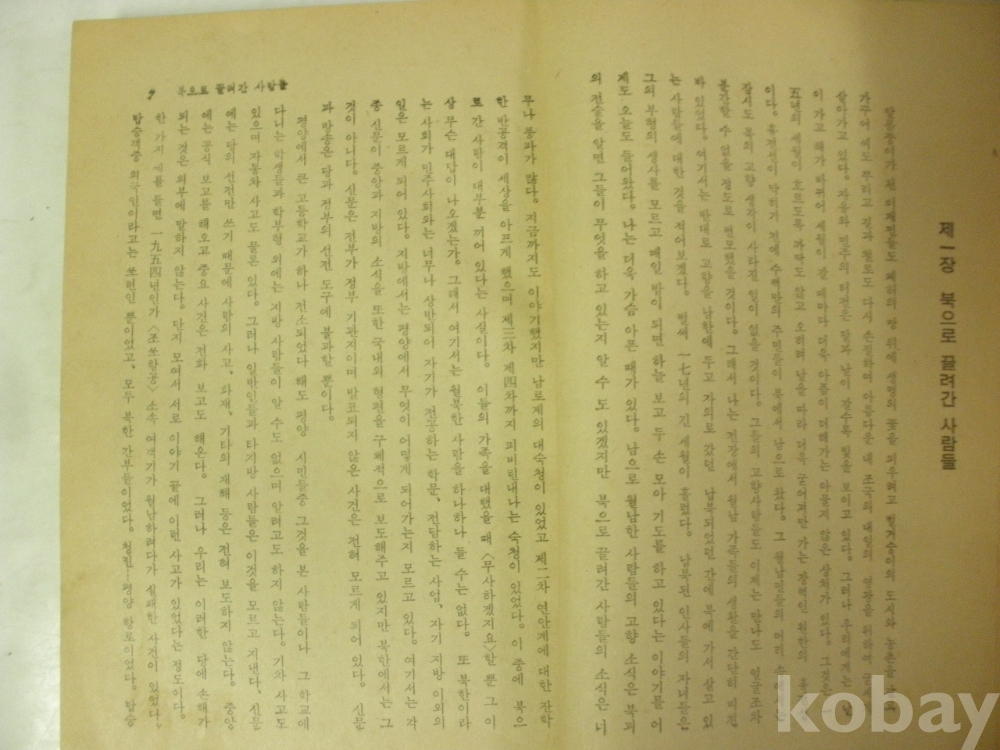 제一장 북으로 끌려간 사람들
살아가고 있다. 자유와 민주의 터전은 달과 날이 갈수록 빛을 보이고 있다. 그러나 우리에게는
이 가고 해가 바뀌어 세월이 갈 때마다 더욱 아픔이 더해가는 아물지 않은 상처가 있다. 그것은
五녀의 세월이 흐르도록 까딱도 않고 오히려 날을 따라 더욱 굳어져만 가는 장벽인 원한의
이다. 휴전선이 막히기 전에 수백만의 주민들이 북에서 남으로 왔다. 그 월남민들의 머리 속에서
잠시도 북의 고향 생각이 사라진 일이 없을 것이다. 그들의 고향사람들도 이제는 만나도 얼굴조차
분간할 수 없을 정도로 변모했을 것이다. 그래서 나는 전장에서 월남 가족들의 생활을 간단히 비친
바 있었다. 여기서는 반대로 고향을 남한에 두고 자의로 갔던 납북되었던 간에 북에 가서 살고 있
는 사람들에 대한 것을 적어보겠다. 벌써 一七년의 긴 세월이 흘렀다. 납북된 인사들의 자녀들은
그의 부형의 생사를 모르고 매일 밤이 되면 하늘 보고 두 손 모아 기도를 하고 있다는 이야기를 어
제도 오늘도 들어왔다. 나는 더욱 가슴 아픈 때가 있다. 남으로 월남한 사람들의 고향 소식은 북괴
의 전술을 알면 그들이 무엇을 하고 있는지 알 수도 있겠지만 북으로 끌려간 사람들의 소식은 너
무나 풍파가 많다. 지금까지도 이야기했지만 남로계의 대숙청이 있었고 제二차 연안계에 대한 잔학
한 반공격이 세상을 아프게 했으며 제三차 제四차까지 피비린내나는 숙청이 있었다. 이 중에 북으
로 간 사람이 대부분 끼어 있다는 사실이다. 이들의 가족을 대했을 때 <무사하겠지요>할 뿐 그 이
상 무슨 대답이 나오겠는가. 그래서 여기서는 월북한 사람을 하나하나 들 수는 없다. 또 북한이라
는 사회가 민주사회와는 너무나 상반되어 자기가 전공하는 학문, 전담하는 사업, 자기 지방 이외의
일은 모르게 되어 있다. 지방에서는 평양에서 무엇이 어떻게 되어가는지 모르고 있다. 여기서는 각
종 신문이 중앙과 지방의 소식을 또한 국내외 형편을 구체적으로 보도해주고 있지만 북한에서는 그
것이 아니다. 신문은 전부가 정부 기관지이며 발표되지 않은 사건은 전혀 모르게 되어 있다. 신문
과 방송은 당과 정부의 선전 도구에 불과할 뿐이다.
평양에서 큰 고등학교가 하나 전소되었다 해도 평양 시민들중 그것을 본 사람들이나 그 학교에
다니는 학생들과 학부형 외에는 지방 사람들이 알 수도 없으며 알려고도 하지 않는다. 기차 사고도
있으며 자동차 사고도 물론 있다. 그러나 일반인들과 타기방 사람들은 이것을 모르고 지낸다. 신문
에는 당의 선전만 쓰기 때문에 사람의 사고, 화재, 기타의 재해 등은 전혀 보도하지 않는다. 중앙
에는 공식 보고를 해오고 중요 사건은 전화 보고도 해온다. 그러나 우리는 이러한 당에 손해가
되는 것은 외부에 말하지 않는다. 단지 모여서 서로 이야기 끝에 이런 사고가 있었다는 정도이다.
한 가지 예를 들면 一九五四년인가 <조쏘항공> 소속 여객기가 월남하려다가 실패한 사건이 있었다.
탑승객중 외국인이라고는 쏘련인 뿐이었고, 모두 북한 간부들이었다. 청진-평양 항로이었다. 탑승
9 북으로 끌려간 사람들
kobay